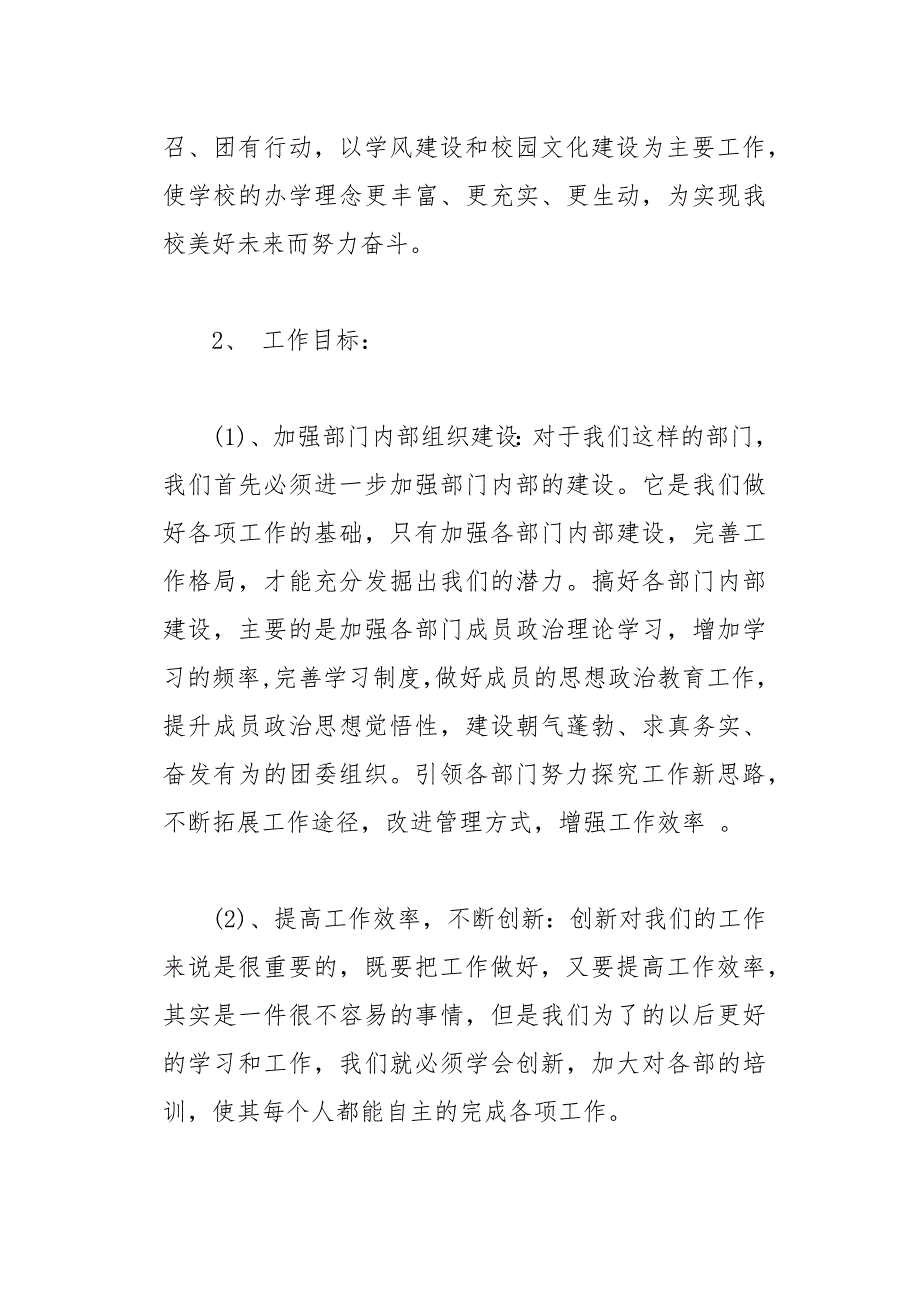 召、团有行动，以学风建设和校园文化建设为主要工作，
使学校的办学理念更丰富、更充实、更生动，为实现我
校美好未来而努力奋斗。
2、 工作目标：
(1)、加强部门内部组织建设：对于我们这样的部门，
我们首先必须进一步加强部门内部的建设。它是我们做
好各项工作的基础，只有加强各部门内部建设，完善工
作格局，才能充分发掘出我们的潜力。搞好各部门内部
建设，主要的是加强各部门成员政治理论学习，增加学
习的频率,完善学习制度，做好成员的思想政治教育工作，
提升成员政治思想觉悟性，建设朝气蓬勃、求真务实、
奋发有为的团委组织。引领各部门努力探究工作新思路，
不断拓展工作途径，改进管理方式，增强工作效率 。
(2)、提高工作效率，不断创新：创新对我们的工作
来说是很重要的，既要把工作做好，又要提高工作效率，
其实是一件很不容易的事情，但是我们为了的以后更好
的学习和工作，我们就必须学会创新，加大对各部的培
训，使其每个人都能自主的完成各项工作。